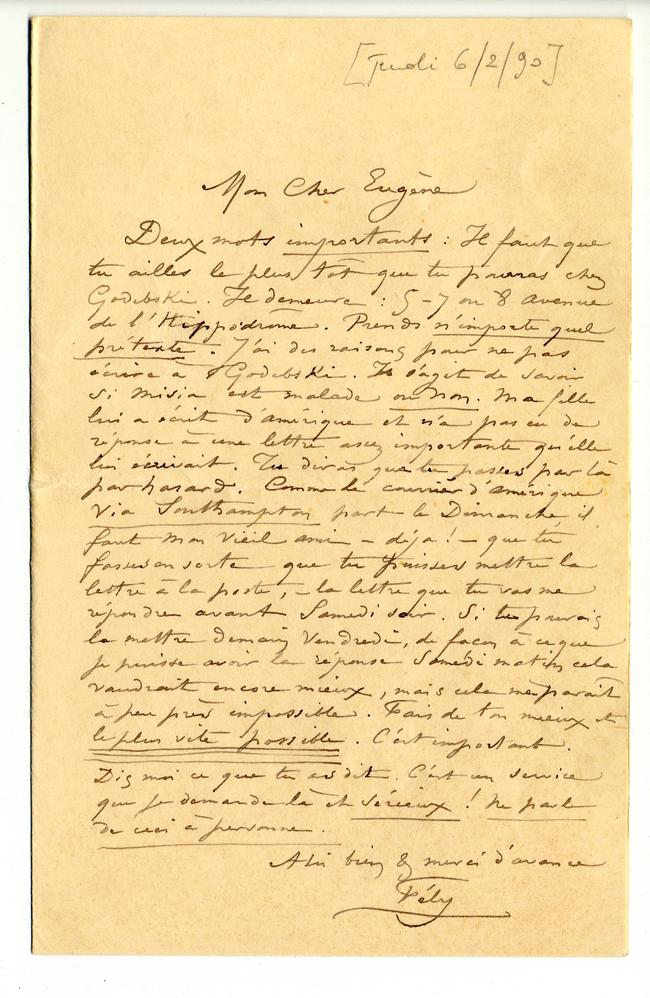 [Jeudi 6/2/90]
Mon Cher Eugène
Deux mots importants : Il faut que
tu ailles le plus tôt que tu pourras chez
Godebski. Il demeure : 5-7 ou 8 avenue
de l'Hippodrome. Prends n'importe quel
prétexte. J'ai des raisons pour ne pas
écrire à Godebski. Il s'agit de savoir
si Misia est malade ou non. Ma fille
lui a écrit d'amérique et n'a pas eu de
réponse à une lettre assez importante qu'elle
lui écrivait. Tu diras que tu passes par là
par hasard. Comme le courrier d'amérique
via Southampton part le Dimanche il
faut mon vieil ami – déja ! – que tu
fasses en sorte que tu puisses mettre la
lettre à la poste, – la lettre que tu vas me
répondre avant Samedi soir. Si tu pouvais
la mettre demain Vendredi, de façon à ce que
je puisse avoir la réponse Samedi matin cela
vaudrait encore mieux, mais cela me parait
à peu près impossible. Fais de ton mieux et
le plus vite possible. C'est important.
Dis moi ce que tu as dit. C'est un service
que je demande là et sérieux ! Ne parle
de ceci à personne.
A toi bien & merci d'avance
Fély